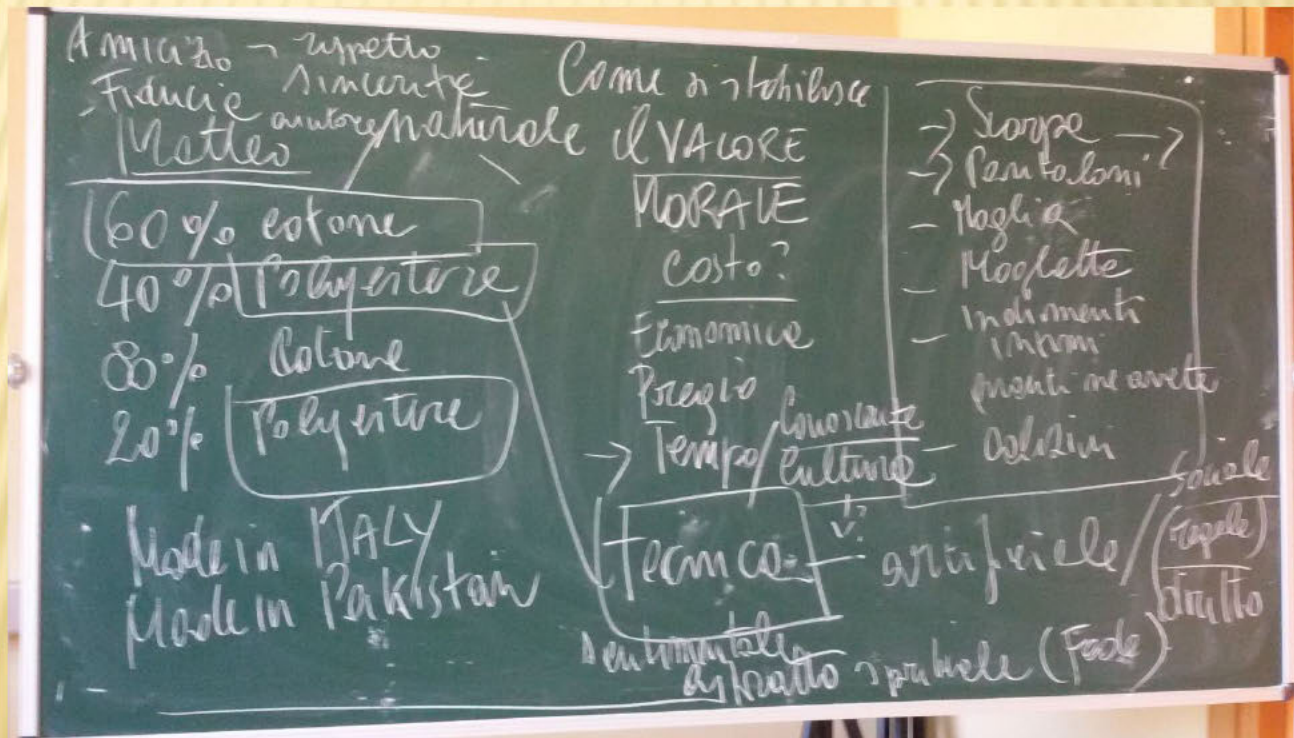 AMICIZIA → rispetto
Fiducia sincerità
naturale
Matteo
60% cotone
40% Polyestere
80% Cotone
20% Polyestere
Made in ITALY
Made in Pakistan
Come si stabilisce
il VALORE
MORALE
Costo?
Economico
Pregio
→ Tempo / Conoscenze
Cultura
Tecnica - artificiale /
sentimentale
astratto spirituale (Fede)
→ Scarpe →
→ Pantaloni
- Maglia
- Magliette
- Indumenti
intimi
quanti ne avete
- calzini
Sociale
diritto